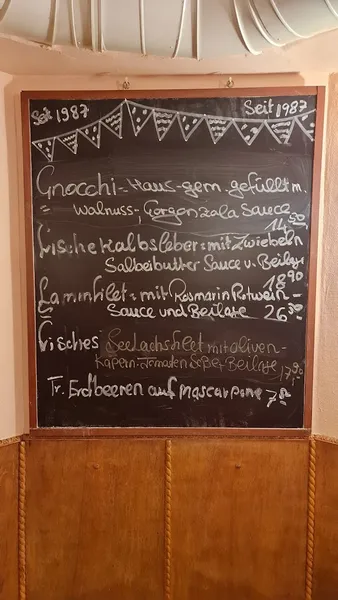 Seit 1987 Seit 1987
Gnocchi-Haus-gem. gefüllt m.
= Walnuss-, Gorgonzola Sauce
14,50
Frische Kalbsleber = mit Zwiebeln
Salbeibutter Sauce u. Beilage
18,90
Lammfilet = mit Rosmarin Rotwein-
Sauce und Beilage 26,50
Frisches Seelachsfilet mit oliven-
Kapern-Tomaten Soße, Beilage 17,90
Fr. Erdbeeren auf mascarpone 7,50